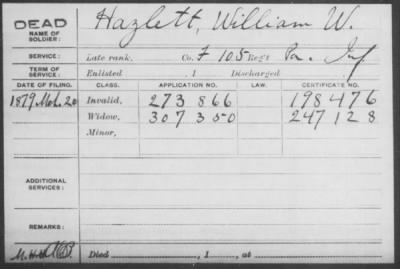 DEAD Hazlett, William W.
NAME OF SOLDIER:
SERVICE: Late rank, Co. F 105 Reg't Pa. Inf
TERM OF SERVICE: Enlisted , 1 Discharged , 1
DATE OF FILING. CLASS. APPLICATION NO. LAW. CERTIFICATE NO.
1879 Mch. 20 Invalid, 273 866 198476
Widow, 307 350 247128
Minor,
ADDITIONAL SERVICES:
REMARKS:
Died , 1 , at